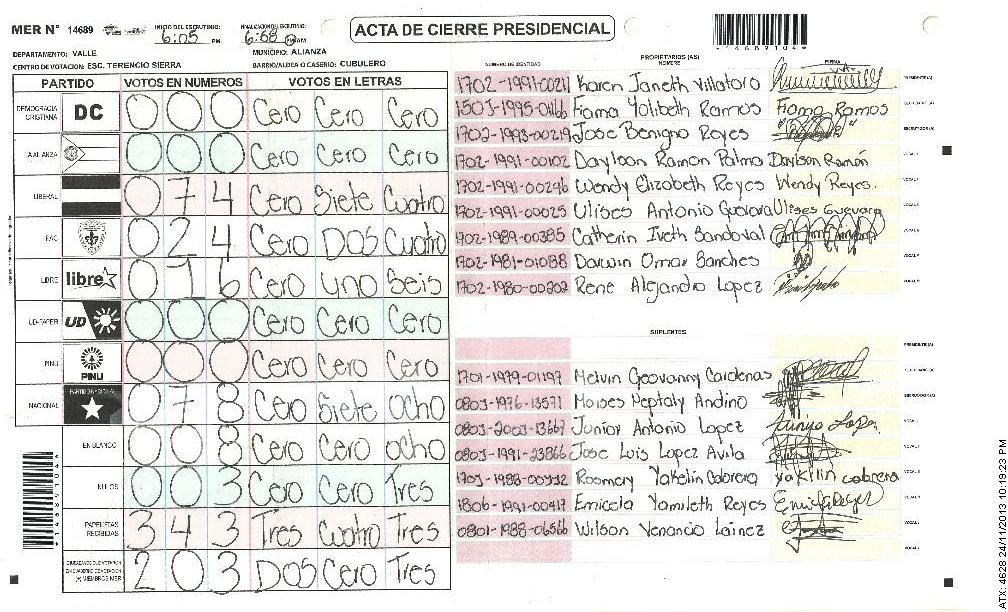 MER N° 14689
INICIO DEL ESCRUTINIO: 6:05 PM
FINALIZACION DEL ESCRUTINIO: 6:68 PM AM
ACTA DE CIERRE PRESIDENCIAL
14689104
DEPARTAMENTO: VALLE
MUNICIPIO: ALIANZA
CENTRO DE VOTACION: ESC. TERENCIO SIERRA
BARRIO/ALDEA O CASERIO: CUBULERO
PARTIDO VOTOS EN NUMEROS VOTOS EN LETRAS
DEMOCRACIA CRISTIANA DC 000 Cero Cero Cero
LA ALIANZA 000 Cero Cero Cero
LIBERAL 074 Cero Siete Cuatro
FAC 024 Cero DOS Cuatro
LIBRE libre 016 Cero uno Seis
UD-FAPER UD 000 Cero Cero Cero
PINU PINU 000 Cero Cero Cero
NACIONAL PARTIDO NACIONAL 078 Cero Siete ocho
EN BLANCO 008 Cero Cero ocho
NULOS 003 Cero Cero Tres
PAPELETAS RECIBIDAS 343 Tres Cuatro Tres
CIUDADANOS QUE VOTARON (+) MIEMBROS MER 203 DOS Cero Tres
PROPIETARIOS (AS)
NUMERO DE IDENTIDAD NOMBRE FIRMA
1702-1991-00211 Karen Janeth Villatoro PRESIDENTE(A)
1503-1995-01166 Fiama Yolibeth Ramos Fiama Ramos SECRETARIO(A)
1702-1993-00219 Jose Benigno Reyes ESCRUTADOR(A)
1702-1991-00102 Dayloon Ramon Palma Daylson Ramón VOCAL I
1702-1991-00296 Wendy Elizabeth Reyes Wendy Reyes.
1702-1991-00025 Ulises Antonio Guevara Ulises Guevara
1702-1989-00385 Catherin Iveth Sandoval
1702-1981-01088 Darwin Omar Sanches
1702-1980-00202 Rene Alejandro Lopez
SUPLENTES
PRESIDENTE(A)
1701-1979-01197 Melvin Geovanny Cardenas SECRETARIO(A)
0803-1976-13571 Moises Neptaly Andino ESCRUTADOR(A)
0803-2003-13667 Junior Antonio Lopez Junyo Lopez
0803-1991-23866 Jose Luis Lopez Avila
1703-1988-00332 Rosmery Yakelin Cabrera yakilin cabrera
1806-1991-00417 Emicela Yamileth Reyes
0801-1988-06566 Wilson Venancio Láinez
ATX: 4628 24/11/2013 10:19:23 PM